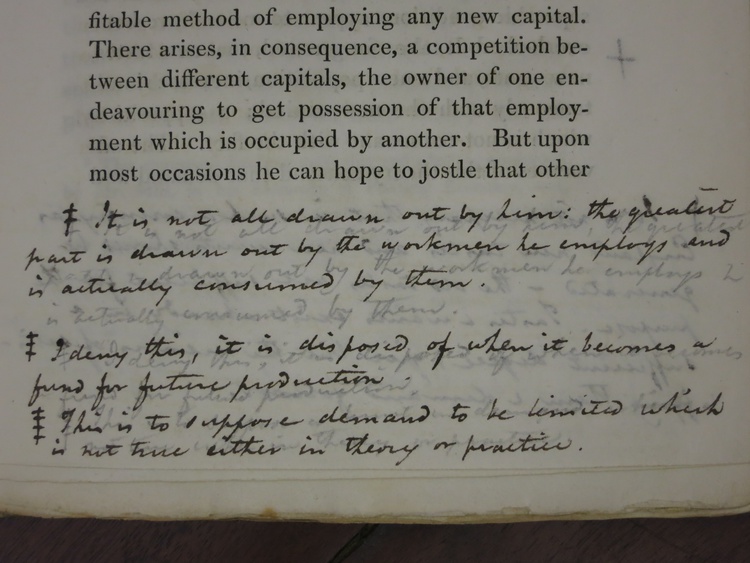 fitable method of employing any new capital.
There arises, in consequence, a competition be-
tween different capitals, the owner of one en-
deavouring to get possession of that employ-
ment which is occupied by another. But upon
most occasions he can hope to jostle that other
‡ It is not all drawn out by him: the greatest
part is drawn out by the workmen he employs and
is actually consumed by them.
‡ I deny this, it is disposed of when it becomes a
fund for future production.
‡ This is to suppose demand to be limited which
is not true either in theory or practice.